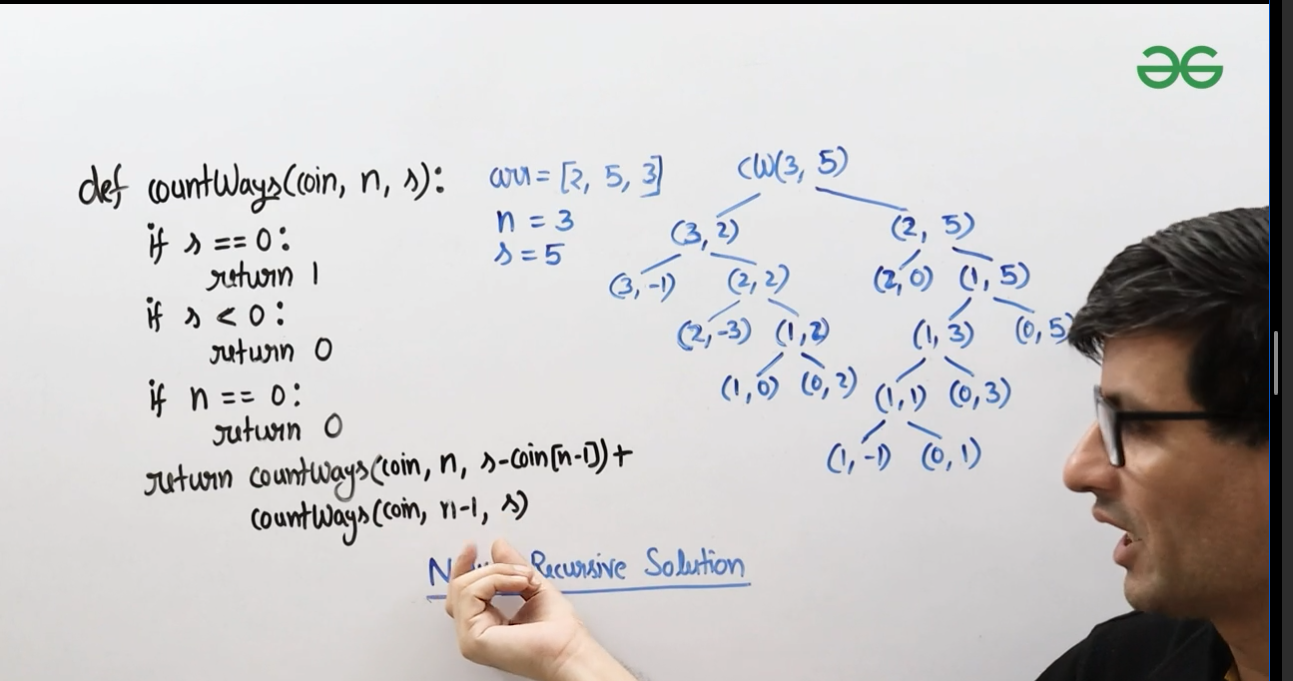 def countWays(coin, n, s):
if s == 0:
return 1
if s < 0:
return 0
if n == 0:
return 0
return countWays(coin, n, s-coin[n-1])+
countWays(coin, n-1, s)
arr = [2, 5, 3]
n = 3
s = 5
CW(3, 5)
(3, 2) (2, 5)
(3, -1) (2, 2) (2, 0) (1, 5)
(2, -3) (1, 2) (1, 3) (0, 5
(1, 0) (0, 2) (1, 1) (0, 3)
(1, -1) (0, 1)
Recursive Solution